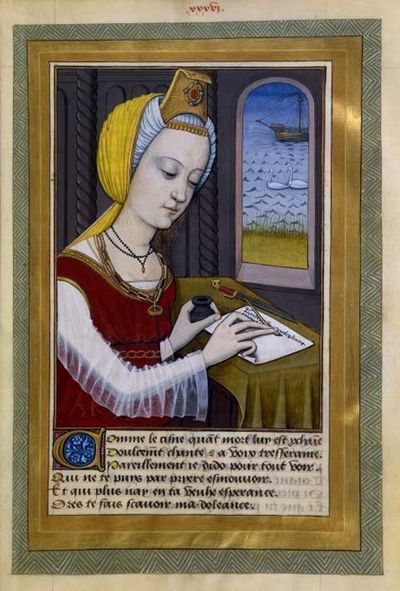 xxxvi
Comme le cisne quāt mort luy est pchaīe
Doulcemēt chante & a voix tresseraine.
Pareillement ie dido pour tout voir.
Qui ne te puys par pryere esmouvoir.
Et qui plus nay en ta esperance.
Ores te fais scavoir ma doleance.